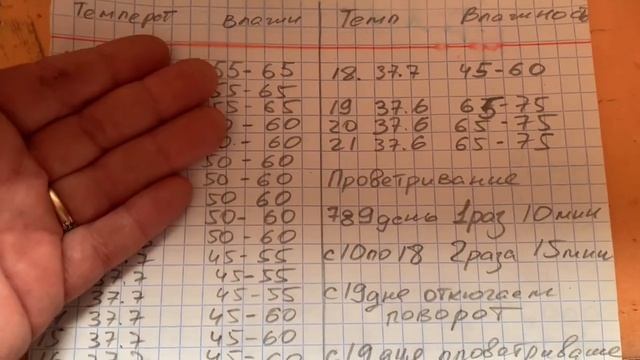 Темперот Влажн Темп Влажность
55-65 18. 37.7 45-60
55-65
55-65 19 37.6 65-75
60 20 37.6 65-75
60 21 37.6 65-75
50-60
50-60 Проветривание
50 60
50-60 789 день 1 раз 10 мин
50-60
45-55 с 10 по 18 2 раза 15 мин
37.7 45-55
37.7 45-55 с 19 дне откючаем
37.7 45-60 поворот
15 37.7 45-60
37.7 45-60 с 19 дно проветриваше